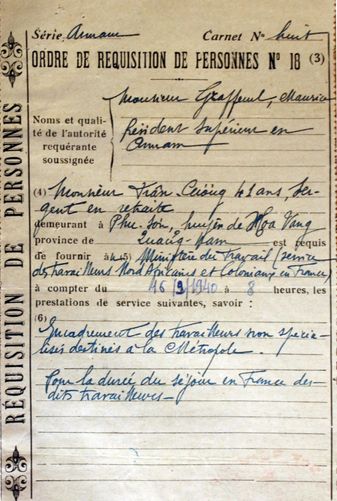 Série Annam Carnet No huit
ORDRE DE REQUISITION DE PERSONNES No 18 (3)
RÉQUISITION DE PERSONNES
Noms et quali-
té de l'autorité
requérante
soussignée
Monsieur Graffeuil, Maurice
Résident Supérieur en
Annam
(4) Monsieur Trân- 41 ans, Ser-
gent en retraite
demeurant à Phu-Son, huyên de Hoa Vang
province de Quang-Nam est requis
de fournir à (5) Ministère du Travail (service
des travailleurs Nord Africains et Coloniaux en France)
à compter du 16/9/1940 à 8 heures, les
prestations de service suivantes, savoir :
(6)
Encadrement des travailleurs non spécia-
lisés destinés à la Métropole.
Pour la durée du séjour en France des-
dits travailleurs-